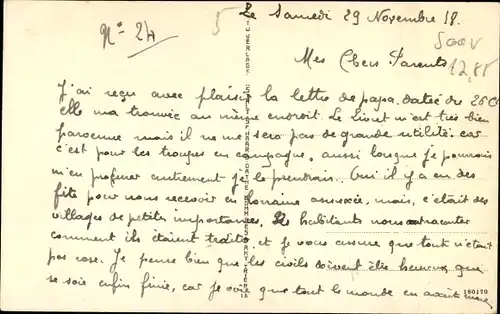 Le Samedi 29 Novembre 18.
N° 24
5
Mes Chers Parents
J'ai reçu avec plaisir la lettre de papa datée du 26
elle m'a trouvé au même endroit. Le livret m'est très bien
parvenu mais il ne me sera pas de grande utilité car
c'est pour les troupes en campagne, aussi lorsque je pourrais
m'en procurer autrement je le prendrais. Oui il y a eu des
fête pour nous recevoir en Lorraine annexée, mais, c'était des
villages de petites importances. Les habitants nous raconter
comment ils étaient traités, et je vous assure que tout n'était
pas rose. Je pense bien que les civils doivent êtes heureux que
se soie enfin finie, car je crois que tout le monde en avait marre
180170